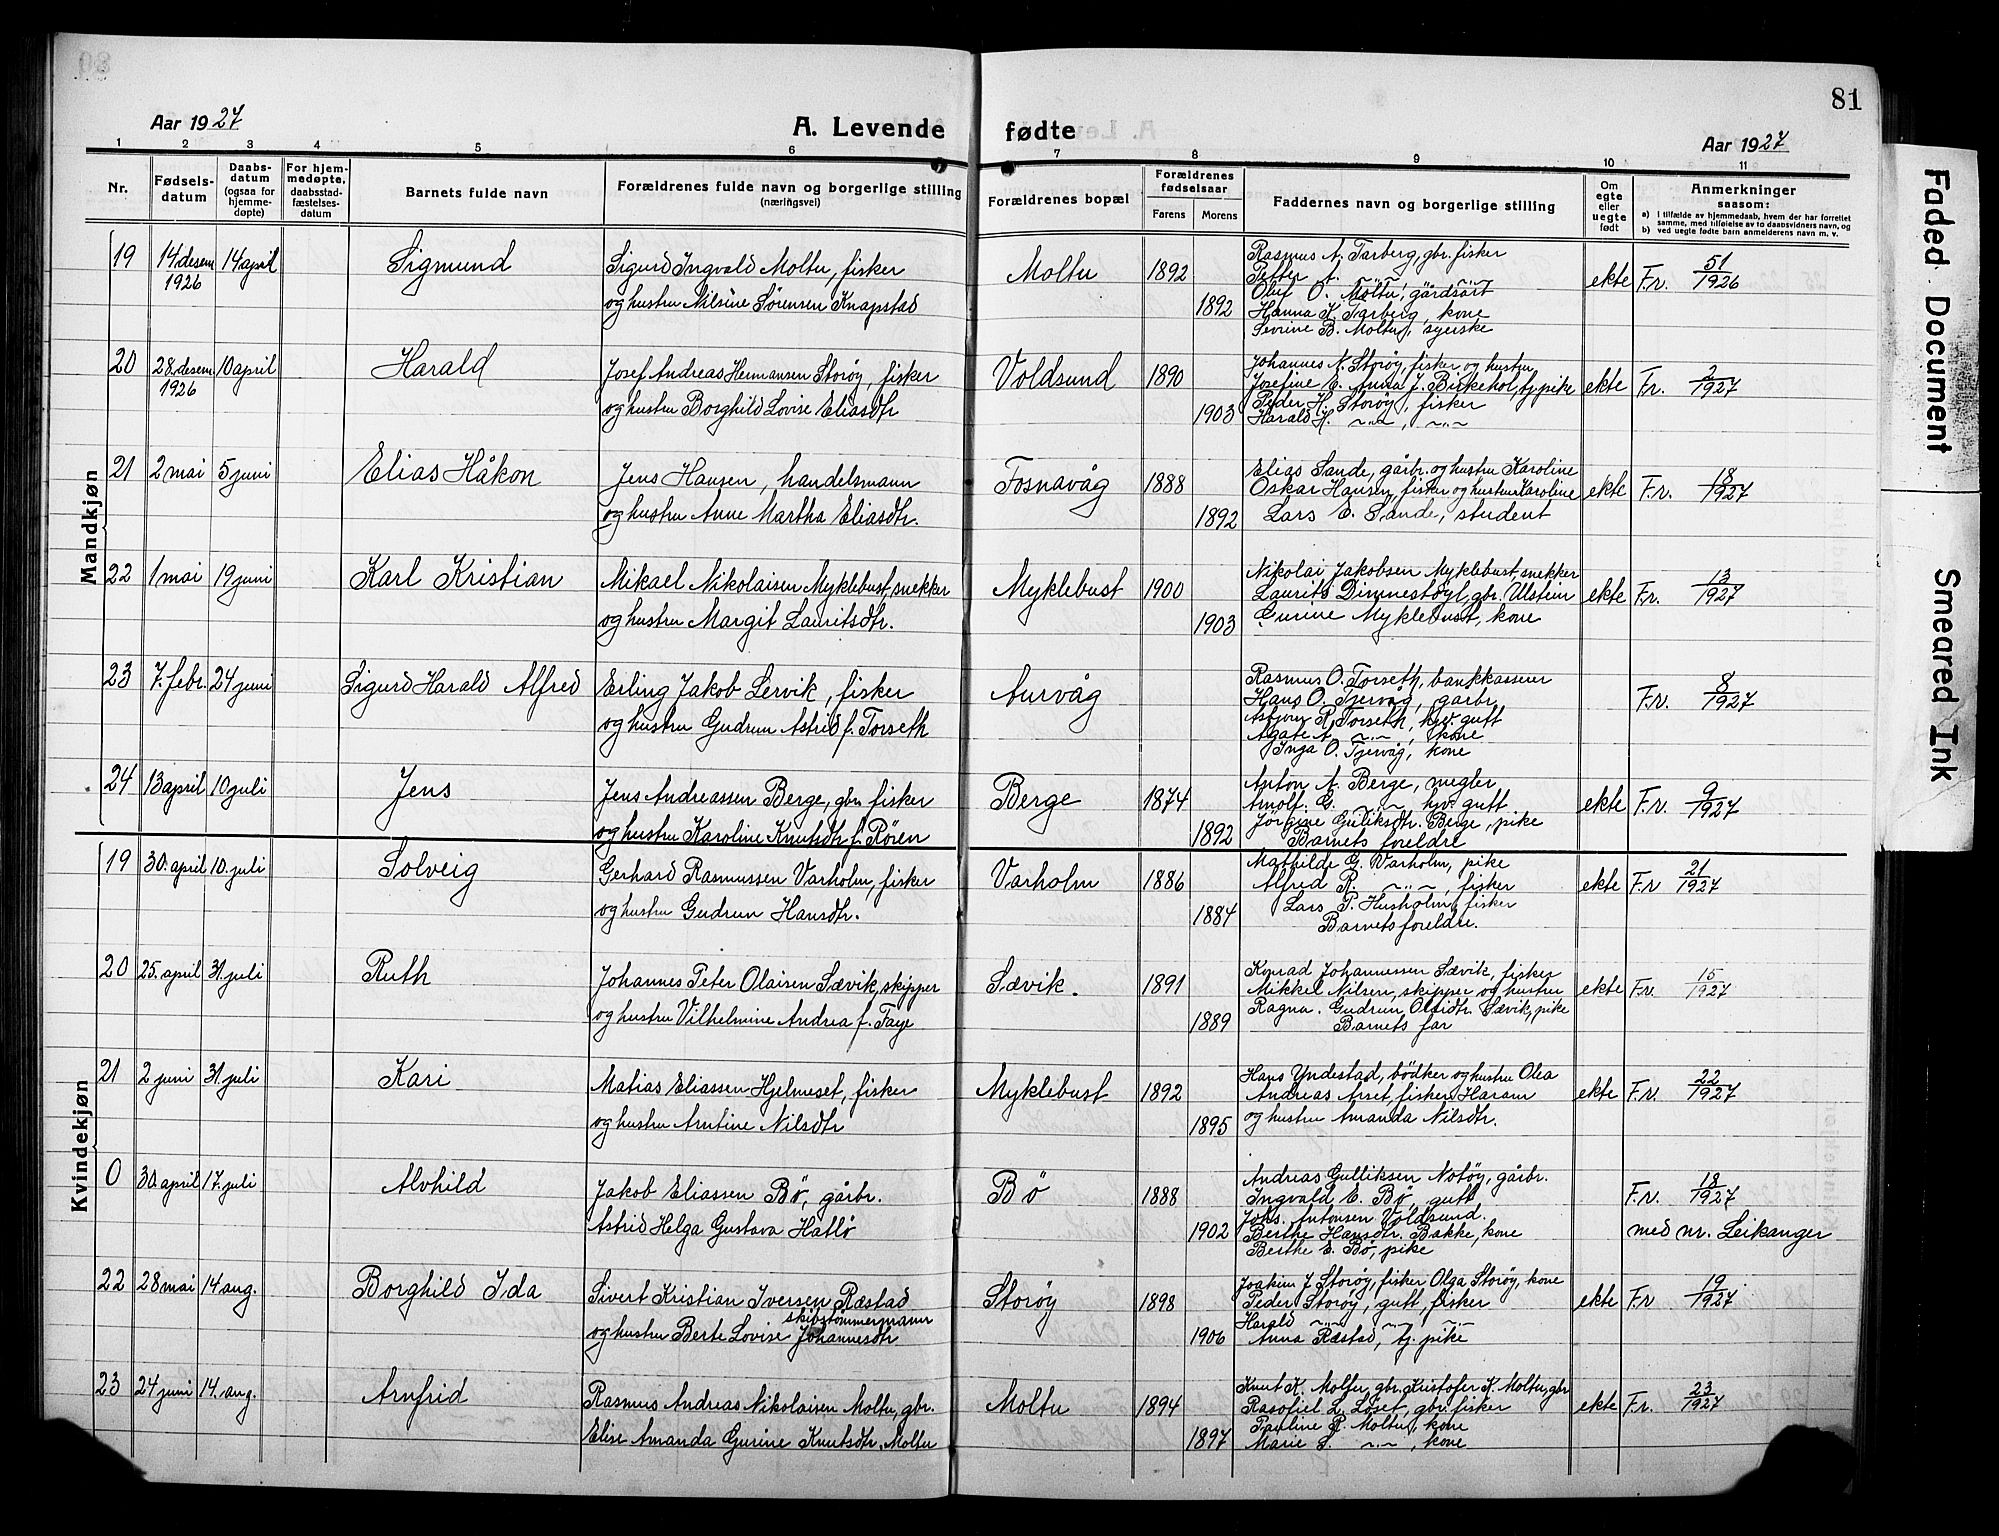 81
Aar 1927
A. Levende fødte
Aar 1927
1 2 3 4 5 6 7 8 9 10 11
Nr.
Fødsels-
datum
Daabs-
datum
(ogsaa for
hjemme-
døpte)
For hjem-
medøpte,
daabsstad-
fæstelses-
datum
Barnets fulde navn
Forældrenes fulde navn og borgerlige stilling
(næringsvei)
Forældrenes bopæl
Forældrenes
fødselsaar
Farens
Morens
Faddernes navn og borgerlige stilling
Om
egte
eller
uegte
født
Anmerkninger
saasom:
a) I tilfælde av hjemmedaab, hvem der har forrettet
samme, med tilføielse av to daabsvidners navn, og
b) ved uegte fødte barn anmelderens navn m. v.
Mandkjøn
19 14 desem 1926 14 april
Sigmund
Sigurd Ingvald Moltu, fisker
og hustru Nilsine Sørensen Knapstad
Moltu 1892 1892
Rasmus A. Tarberg, gbr. fisker
Petter A. -"-
Oluf O. Moltu, gårdsart
Hanna K. Tarberg, kone
Sevrine B. Moltu, syerske
ekte F.r. 51/1926
20 28. desem 1926 10 april
Harald
Josef Andreas Hermansen Storøy, fisker
og hustru Borghild Lovise Eliasdtr
Voldsund 1890 1903
Johannes N. Storøy, fisker og hustru
Josefine E. Anna J. Birkehol, tj. pike
Peder H. Storøy, fisker
Harald H. -"-, -"-
ekte Fr. 2/1927
21 2 mai 5 juni
Elias Håkon
Jens Hansen, handelsmann
og hustru Anne Martha Eliasdtr.
Fosnavåg 1888 1892
Elias Sande, gårbr. og hustru Karoline
Oskar Hansen, fisker og hustru Karoline
Lars E. Sande, student
ekte F.r. 18/1927
22 1 mai 19 juni
Karl Kristian
Mikael Nikolaisen Myklebust, snekker
og hustru Margit Lauritsdtr.
Myklebust 1900 1903
Nikolai Jakobsen Myklebust, snekker
Laurits Dimnestøyl, gbr. Ulstein
Gurine Myklebust, kone
ekte F.r. 13/1927
23 7. febr. 24 juni
Sigurd Harald Alfred
Erling Jakob Lervik, fisker
og hustru Gudrun Astrid f. Torseth
Aurvåg
Rasmus O. Torseth, bankkasserer
Hans O. Tjervåg, gårbr.
Asbjørn R. Torseth, hjv. gutt
Agate A. -"-, kone
Inga O. Tjervåg, kone
F.r. 8/1927
24 13 april 10 juli
Jens
Jens Andreassen Berge, gbr. fisker
og hustru Karoline Knutsdtr f. Røren
Berge 1874 1892
Anton A. Berge, megler
Arnolf G. -"- hjv. gutt
Jørgine Guliksdtr. Berge, pike
Barnets foreldre
ekte F.r. 9/1927
Kvindekjøn
19 30. april 10. juli
Solveig
Gerhard Rasmussen Varholm, fisker
og hustru Gudrun Hansdtr.
Varholm 1886 1884
Mathilde G. Varholm, pike
Alfred R. -"-, fisker
Lars P. Husholm, fisker
Barnets foreldre.
ekte F.r 21/1927
20 25. april 31. juli
Ruth
Johannes Peter Olaisen Sævik, skipper
og hustru Vilhelmine Andrea f. Faye
Sævik. 1891 1889
Konrad Johannessen Sævik, fisker
Mikkel Nilsen, skipper og hustru
Ragna. Gudrun Olaidtr. Sævik, pike
Barnets far
ekte F.r. 15/1927
21 2 juni 31. juli
Kari
Matias Eliassen Hjelmeset, fisker
og hustru Antine Nilsdtr
Myklebust 1892 1895
Hans Yndestad, bødker og hustru Olea
Andreas Arset, fisker Haram
og hustru Amanda Nilsdtr.
ekte F.r. 22/1927
0 30. april 17. juli
Alvhild
Jakob Eliassen Bø, gårbr.
Astrid Helga Gustava Hatlø
Bø 1888 1902
Andreas Gulliksen Notøy, gårbr.
Ingvald E. Bø, gutt
Johs. Antonsen Voldsund.
Berthe Hansdtr. Bakke, kone
Berthe E. Bø, pike
F.r. 18/1927
med nr. Leikanger
22 28 mai 14 aug.
Borghild Ida
Sivert Kristian Iversen Ræstad
skibstømmermann
og hustru Berte Lovise Johannesdtr
Storøy 1898 1906
Joakim J. Storøy, fisker Olga Storøy, kone
Peder Storøy, gutt, fisker
Harald -"- -"- -"-
Anna Ræstad, tj. pike
ekte F.r 19/1927
23 24 juni 14. aug.
Arnfrid
Rasmus Andreas Nikolaisen Moltu, gbr.
Elise Amanda Gurine Knutsdtr. Moltu
Moltu 1894 1897
Knut K. Moltu, gbr. Kristofer K. Moltu, gbr
Rasofiel L. Løset, gbr. fisker
Pauline R. Moltu, kone
Marie S. -"-, kone
ekte F.r. 23/1927
Faded Document
Smeared Ink